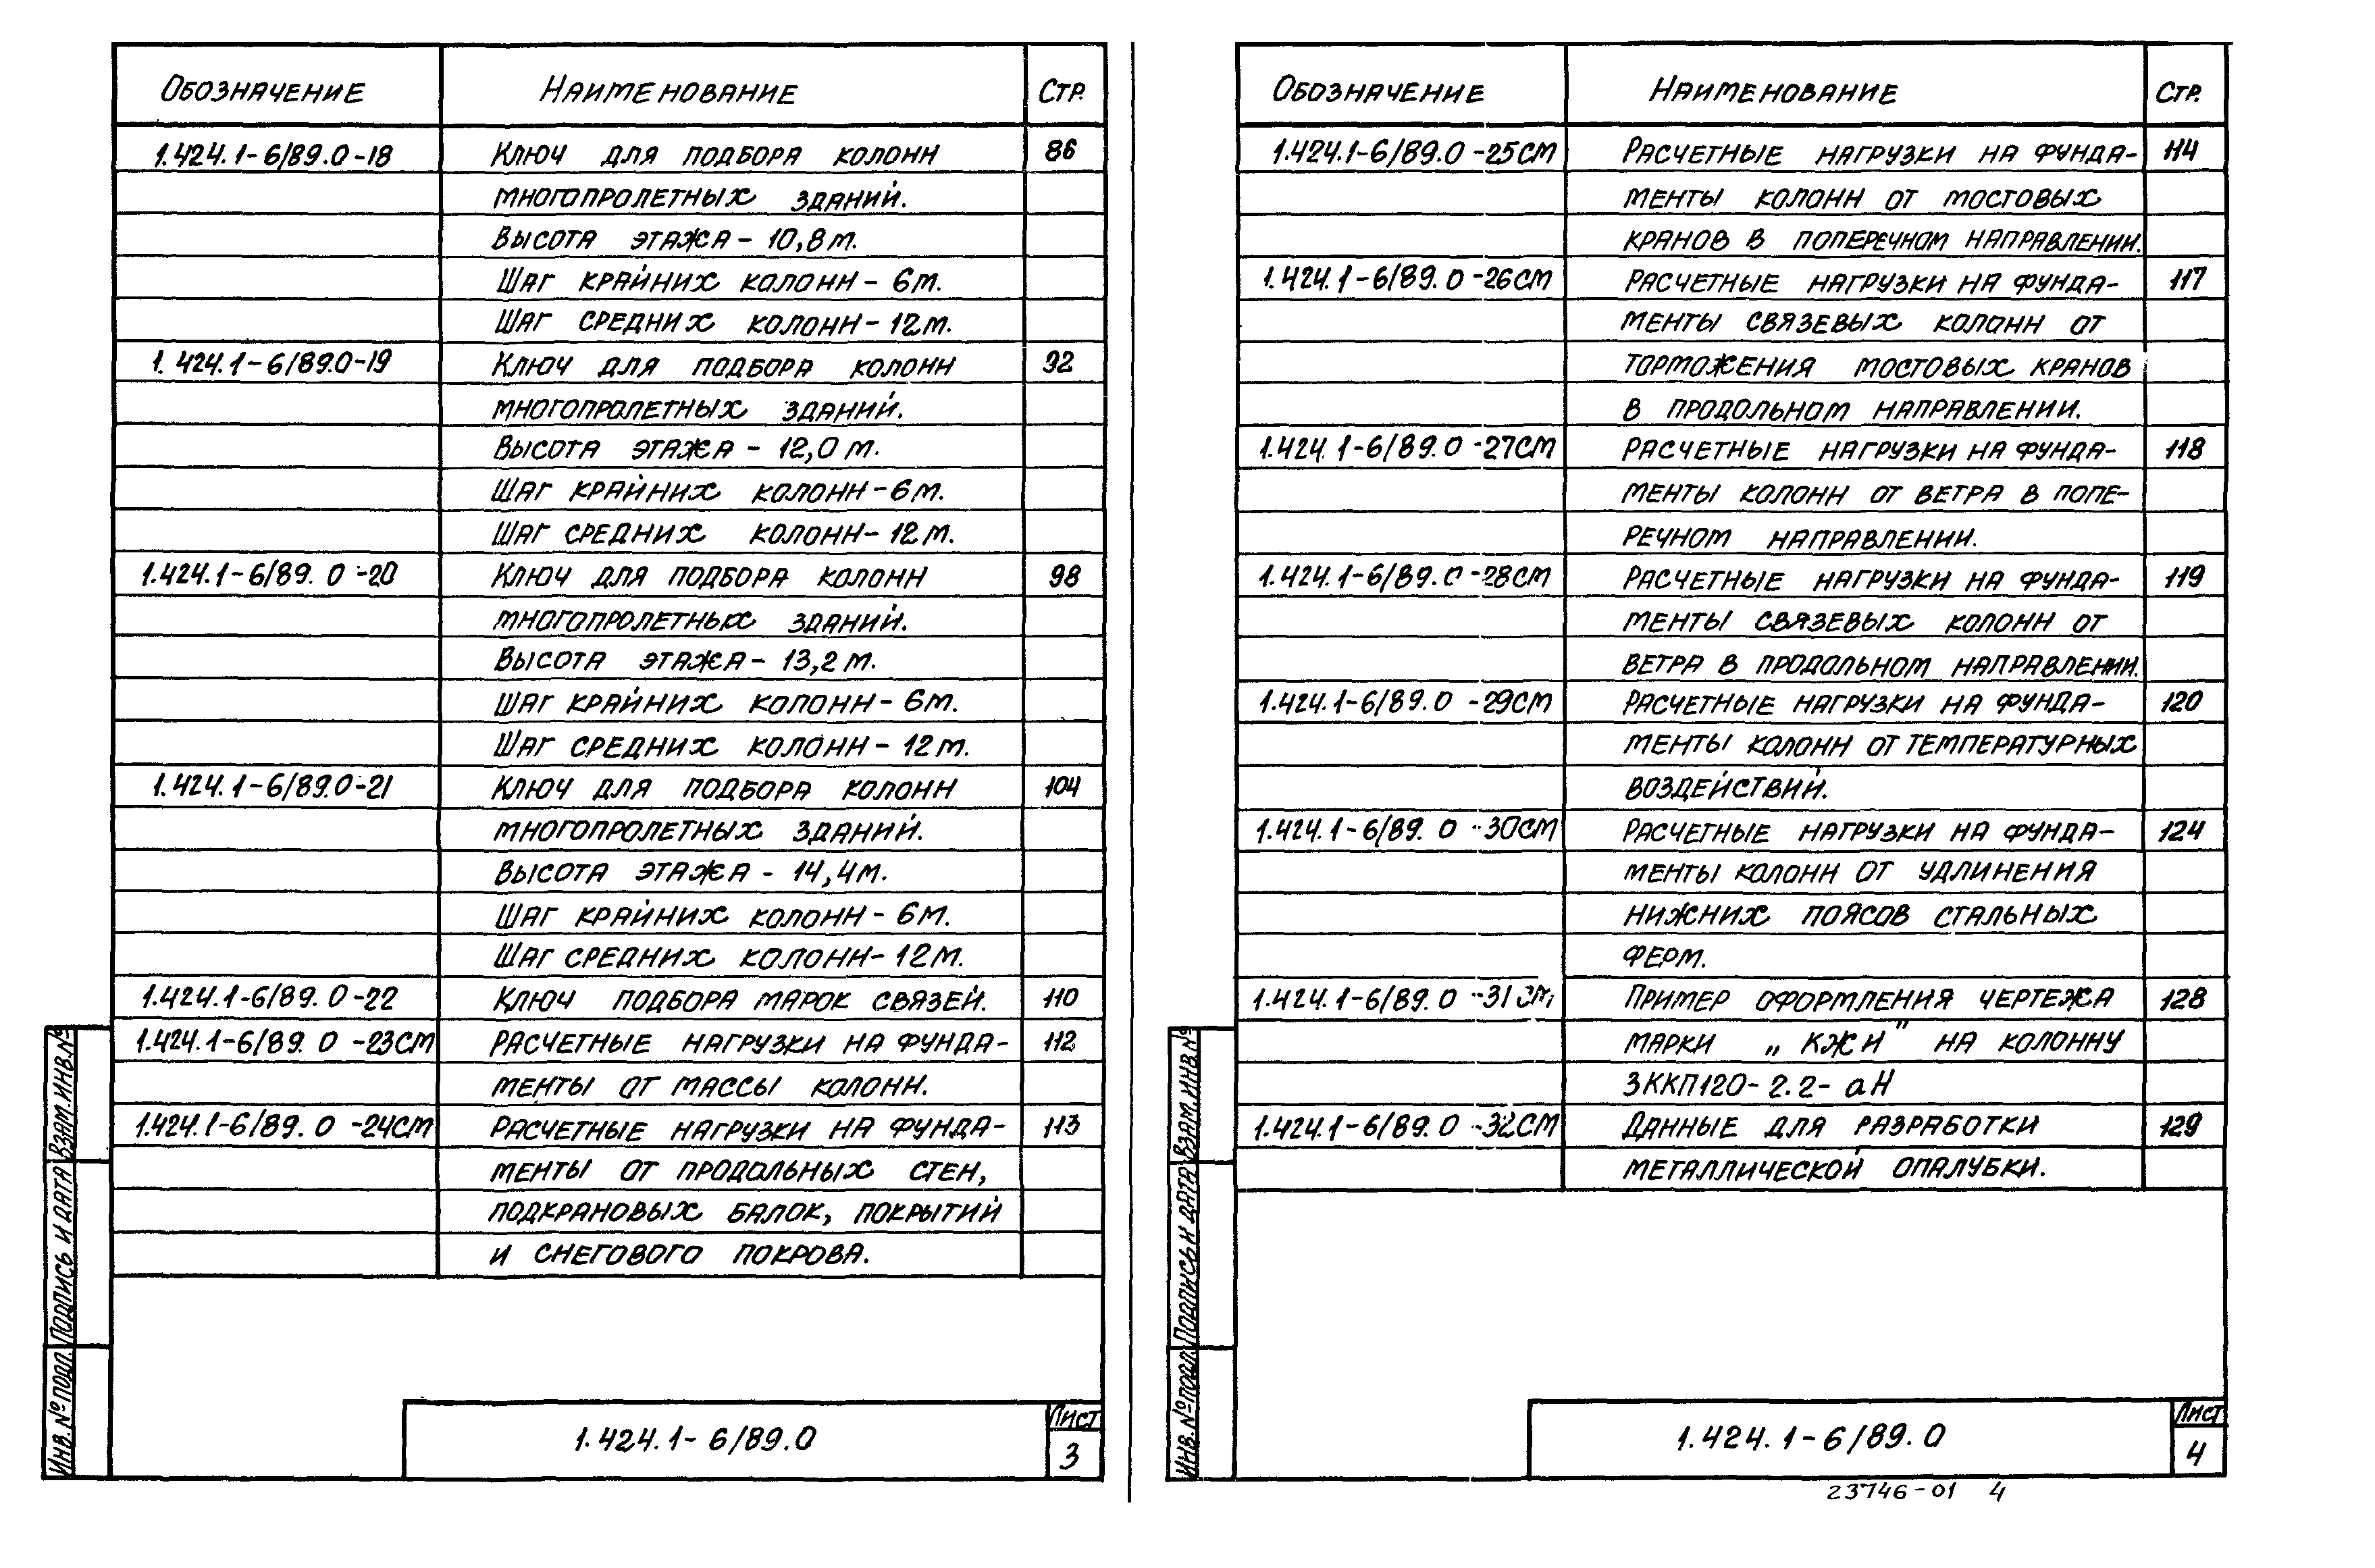 Обозначение Наименование Стр.
1.424.1-6/89.0-18 Ключ для подбора колонн 86
многопролетных зданий.
Высота этажа - 10,8 м.
Шаг крайних колонн - 6 м.
Шаг средних колонн - 12 м.
1.424.1-6/89.0-19 Ключ для подбора колонн 92
многопролетных зданий.
Высота этажа - 12,0 м.
Шаг крайних колонн - 6 м.
Шаг средних колонн - 12 м.
1.424.1-6/89.0-20 Ключ для подбора колонн 98
многопролетных зданий.
Высота этажа - 13,2 м.
Шаг крайних колонн - 6 м.
Шаг средних колонн - 12 м.
1.424.1-6/89.0-21 Ключ для подбора колонн 104
многопролетных зданий.
Высота этажа - 14,4 м.
Шаг крайних колонн - 6 м.
Шаг средних колонн - 12 м.
1.424.1-6/89.0-22 Ключ подбора марок связей. 110
1.424.1-6/89.0-23СМ Расчетные нагрузки на фунда- 112
менты от массы колонн.
1.424.1-6/89.0-24СМ Расчетные нагрузки на фунда- 113
менты от продольных стен,
подкрановых балок, покрытий
и снегового покрова.
Взам.инв.№
Подпись и дата
Инв.№ подл.
1.424.1-6/89.0
Лист
3
Обозначение Наименование Стр.
1.424.1-6/89.0-25СМ Расчетные нагрузки на фунда- 114
менты колонн от мостовых
кранов в поперечном направлении.
1.424.1-6/89.0-26СМ Расчетные нагрузки на фунда- 117
менты связевых колонн от
торможения мостовых кранов
в продольном направлении.
1.424.1-6/89.0-27СМ Расчетные нагрузки на фунда- 118
менты колонн от ветра в попе-
речном направлении.
1.424.1-6/89.0-28СМ Расчетные нагрузки на фунда- 119
менты связевых колонн от
ветра в продольном направлении.
1.424.1-6/89.0-29СМ Расчетные нагрузки на фунда- 120
менты колонн от температурных
воздействий.
1.424.1-6/89.0-30СМ Расчетные нагрузки на фунда- 124
менты колонн от удлинения
нижних поясов стальных
ферм.
1.424.1-6/89.0-31СМ Пример оформления чертежа 128
марки „КЖИ" на колонну
3ККП120-2.2-аН
1.424.1-6/89.0-32СМ Данные для разработки 129
металлической опалубки.
Взам.инв.№
Подпись и дата
Инв.№ подл.
1.424.1-6/89.0
Лист
4
23746-01 4